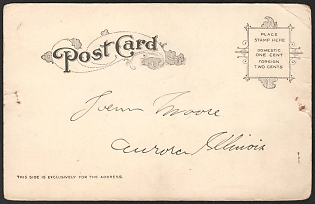 Post Card
PLACE
STAMP HERE
DOMESTIC
ONE CENT
FOREIGN
TWO CENTS
Moore
Aurora Illinois
THIS SIDE IS EXCLUSIVELY FOR THE ADDRESS.